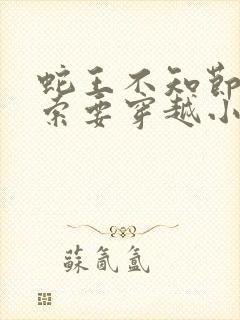 蛇王不知節
索要穿越小
蘇氤氳